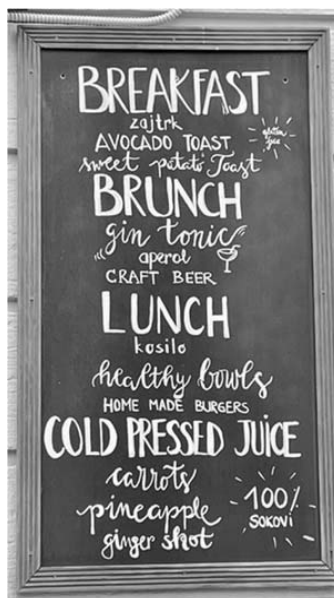 BREAKFAST
zajtrk
AVOCADO TOAST
gluten
free
sweet potato Toast
BRUNCH
gin tonic
aperol
CRAFT BEER
LUNCH
kosilo
healthy bowls
HOME MADE BURGERS
COLD PRESSED JUICE
carrots
pineapple
ginger shot
100%
SOKOVI